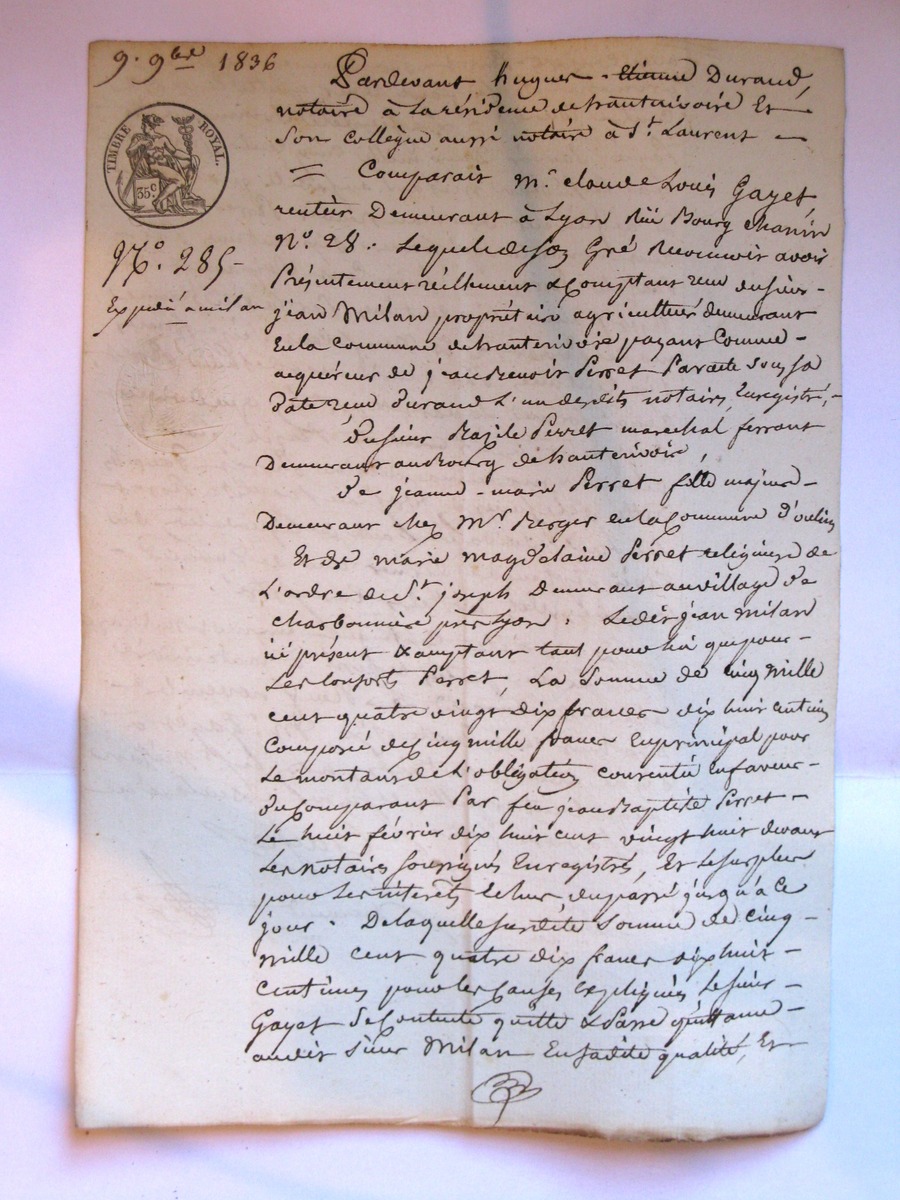 9. 9bre 1836
TIMBRE ROYAL.
35c
N.o 285 -
Expédié à milan
Pardevant hugues - etienne Durand,
notaire à la résidence de hauterivoire Et
son collègue aussi notaire à St. Laurent -
= Comparait Mr. claude Louis Gayet
rentier Demeurant à Lyon Rüe Bourg chanin
No. 28. Lequel de son Gré Reconnoit avoir
Présentement réellement & Comptant reçu du sieur -
jean Milan propriétaire agriculteur demeurant
En la commune de hauterivoire payant Comme -
acquéreur de jean Benoit Perret Par acte sous sa
Date reçu Durand L'un desdits notaires, Enregistré, -
Du sieur Bazile Perret marechal ferrant
Demeurant au Bourg de hauterivoire,
De jeanne - marie Perret fille majeure -
Demeurant chez Mr. Berger en la Commune D'oulins
Et de marie magdelaine Perret religieuse de
L'ordre de St. joseph Demeurant au village De
Charbonnière près Lyon. Ledit jean Milan
ici présent & acceptant tant pour lui que pour -
Les Consorts Perret, La Somme de cinq Mille
cent quatre vingt Dix francs dix huit centimes
Composée de Cinq mille francs En principal pour
Le montant de L'obligation consentie En faveur -
Du Comparant Par feu jean Baptiste Perret -
Le huit février dix huit cent vingt huit devant
Les notaires soussignés Enregistrée, Et Le surplus
pour Les intérêts du passé jusqu'à Ce
jour. De laquelle susdite Somme de Cinq -
Mille Cent quatre dix francs dix huit -
Centimes pour les Causes Expliquées, Le sieur
Gayet Se Contente quitte & Passe quittance -
audit sieur Milan En sadite qualité, Et